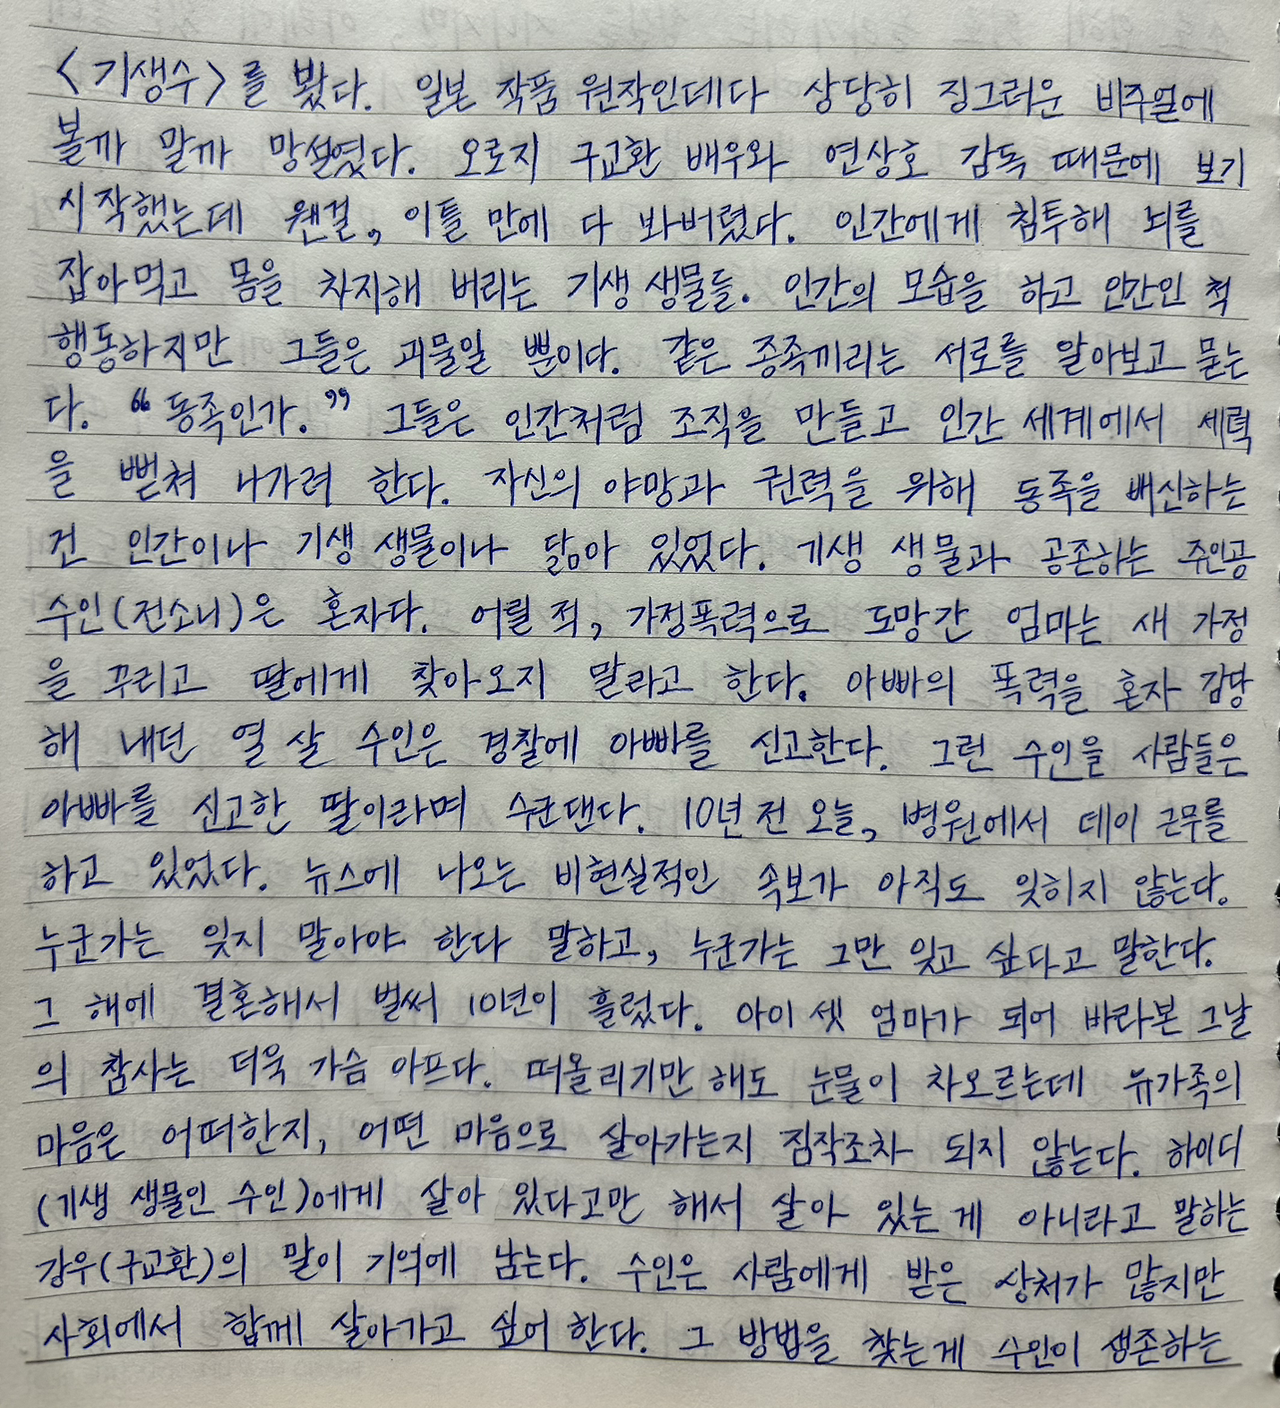 <기생수>를 봤다. 일본 작품 원작인데다 상당히 징그러운 비주얼에
볼까 말까 망설였다. 오로지 구교환 배우와 연상호 감독 때문에 보기
시작했는데 웬걸, 이틀 만에 다 봐버렸다. 인간에게 침투해 뇌를
잡아먹고 몸을 차지해 버리는 기생 생물들. 인간의 모습을 하고 인간인 척
행동하지만 그들은 괴물일 뿐이다. 같은 종족끼리는 서로를 알아보고 묻는
다. “동족인가.” 그들은 인간처럼 조직을 만들고 인간 세계에서 세력
을 뻗쳐 나가려 한다. 자신의 야망과 권력을 위해 동족을 배신하는
건 인간이나 기생 생물이나 닮아 있었다. 기생 생물과 공존하는 주인공
수인(전소니)은 혼자다. 어릴 적, 가정폭력으로 도망간 엄마는 새 가정
을 꾸리고 딸에게 찾아오지 말라고 한다. 아빠의 폭력을 혼자 감당
해 내던 열 살 수인은 경찰에 아빠를 신고한다. 그런 수인을 사람들은
아빠를 신고한 딸이라며 수군댄다. 10년 전 오늘, 병원에서 데이 근무를
하고 있었다. 뉴스에 나오는 비현실적인 속보가 아직도 잊히지 않는다.
누군가는 잊지 말아야 한다 말하고, 누군가는 그만 잊고 싶다고 말한다.
그 해에 결혼해서 벌써 10년이 흘렀다. 아이 셋 엄마가 되어 바라본 그날
의 참사는 더욱 가슴 아프다. 떠올리기만 해도 눈물이 차오르는데 유가족의
마음은 어떠한지, 어떤 마음으로 살아가는지 짐작조차 되지 않는다. 하이디
(기생 생물인 수인)에게 살아 있다고만 해서 살아 있는 게 아니라고 말하는
강우(구교환)의 말이 기억에 남는다. 수인은 사람에게 받은 상처가 많지만
사회에서 함께 살아가고 싶어 한다. 그 방법을 찾는게 수인이 생존하는